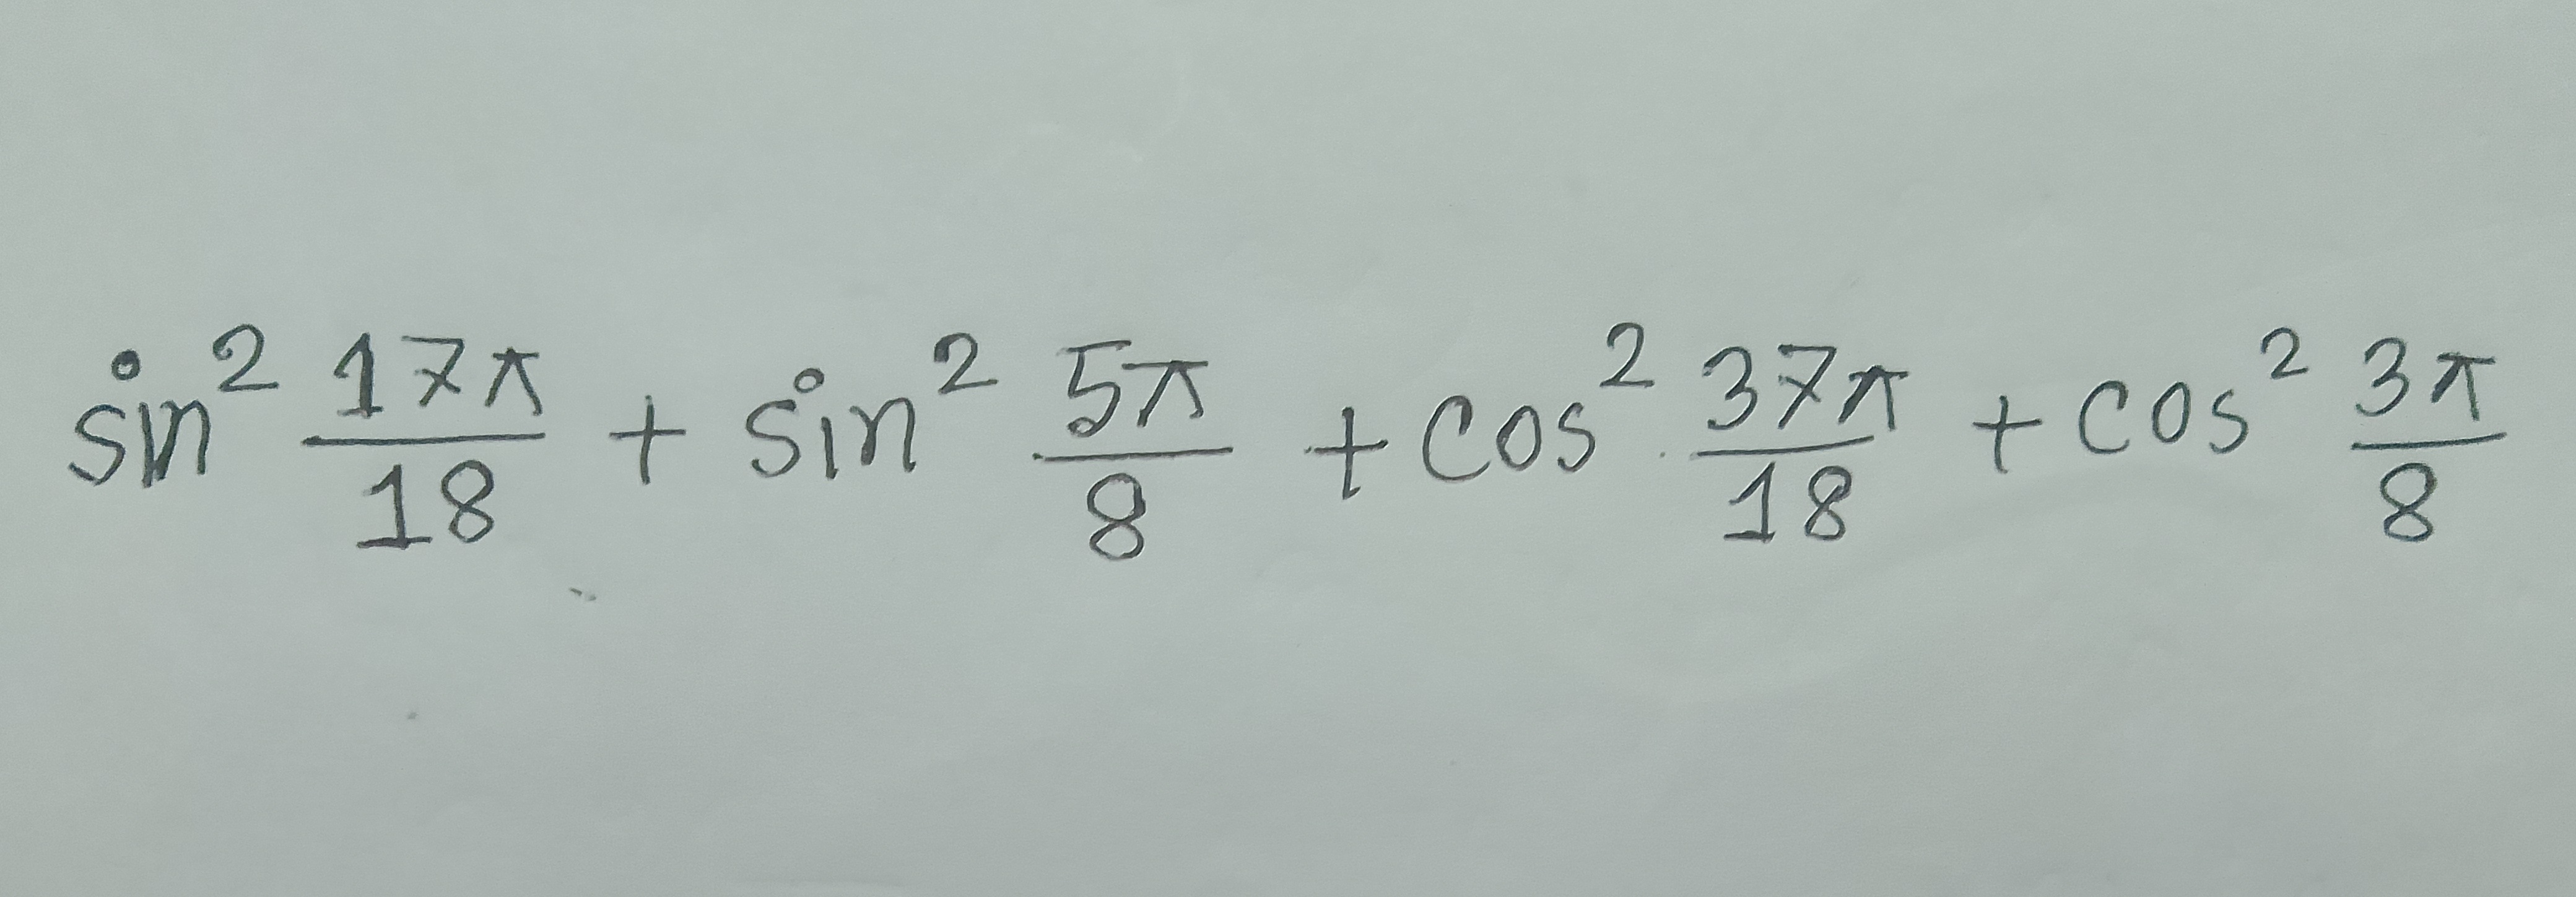 sin² 17π/18 + sin² 5π/8 + cos² 37π/18 + cos² 3π/8